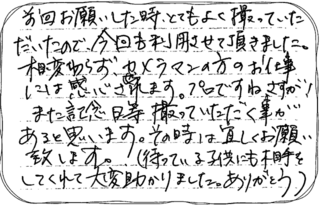 前回お願いした時、とてもよく撮っていた
だいたので、今回も利用させて頂きました。
相変わらず、カメラマンの方のお仕事
には感心されます。プロですねさすが!
また記念日等撮っていただく事が
あると思います。その時は宜しくお願い
致します。(待っている子供にも相手を
してくれて大変助かりました。ありがとう)